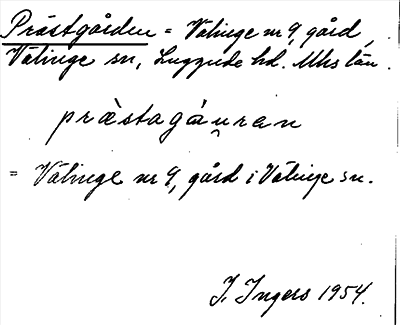 Prästgården = Välinge nr 9, gård,
Välinge sn, Luggude hd. Mhs län.
præ̀stagáu̯ren
= Välinge nr 9, gård i Välinge sn.
I. Ingers 1954.